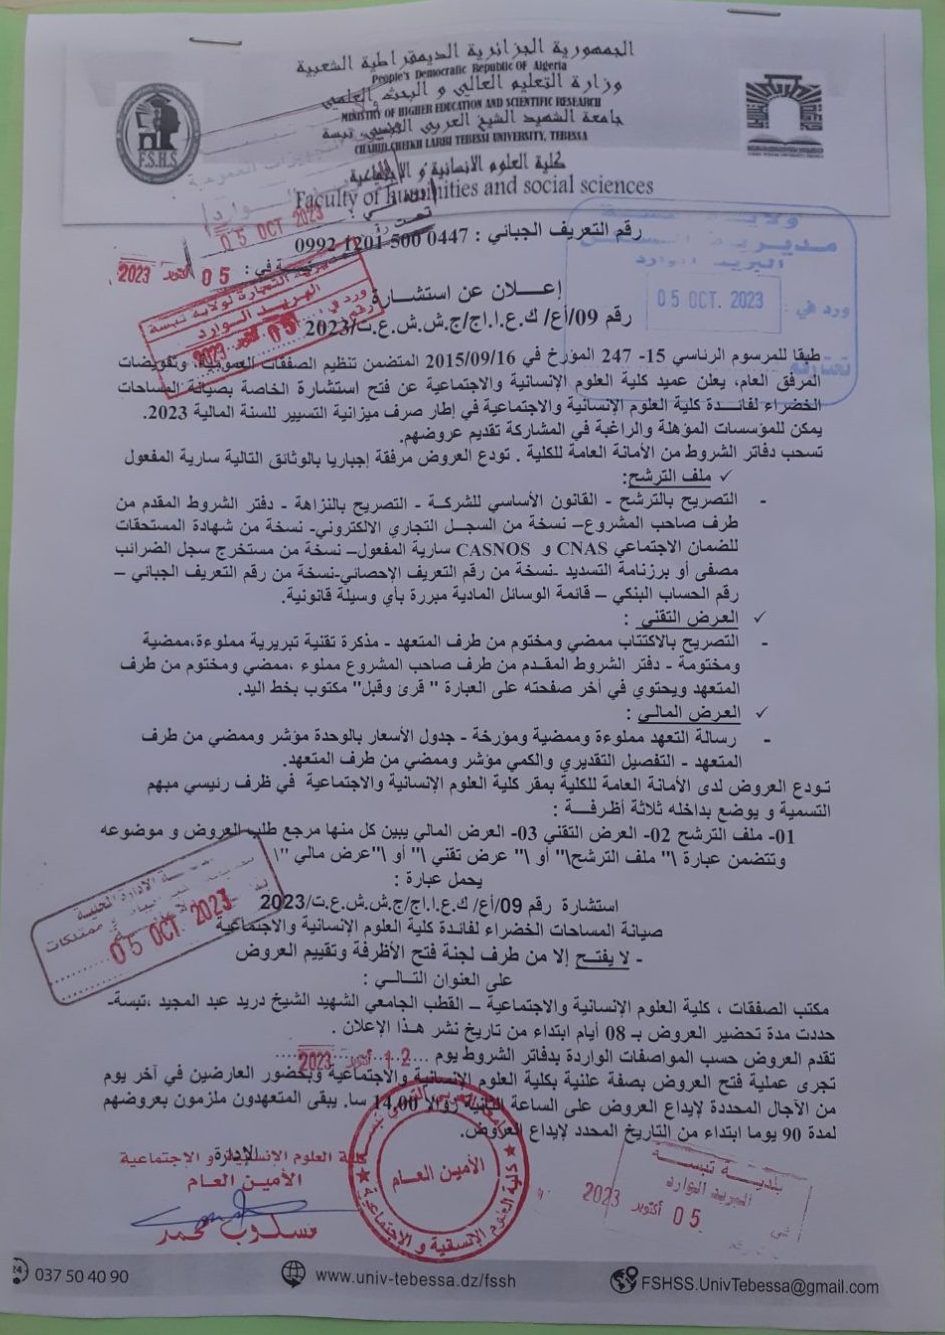 الجمهورية الجزائرية الديمقراطية الشعبية
People's Democratic Republic OF Algeria
وزارة التعليم العالي و البحث العلمي
MINISTRY OF HIGHER EDUCATION AND SCIENTIFIC RESEARCH
جامعة الشهيد الشيخ العربي التبسي، تبسة
CHAHID CHEIKH LARBI TEBESSI UNIVERSITY, TEBESSA
كلية العلوم الانسانية و الاجتماعية
Faculty of humanities and social sciences
F.S.H.S
05 OCT 2023
رقم التعريف الجبائي : 0447 500 1201 0992
05 أكتوبر 2023
ولاية تبسة
البريد الوارد
05 OCT. 2023
ورد في :
مديرية التجارة لولاية تبسة
البريد الوارد
إعـــلان عن استشــارة
رقم 09/أع/ ك.ع.ا.اج/ج.ش.ش.ع.ت/2023
طبقا للمرسوم الرئاسي 15- 247 المؤرخ في 2015/09/16 المتضمن تنظيم الصفقات العمومية، وتفويضات
المرفق العام، يعلن عميد كلية العلوم الإنسانية والاجتماعية عن فتح استشارة الخاصة بصيانة المساحات
الخضراء لفائــدة كلية العلوم الإنسانية والاجتماعية في إطار صرف ميزانية التسيير للسنة المالية 2023.
يمكن للمؤسسات المؤهلة والراغبة في المشاركة تقديم عروضهم.
تسحب دفاتر الشروط من الأمانة العامة للكلية . تودع العروض مرفقة إجباريا بالوثائق التالية سارية المفعول
✓ ملف الترشح:
- التصريح بالترشح - القانون الأساسي للشركة - التصريح بالنزاهة - دفتر الشروط المقدم من
طرف صاحب المشروع– نسخة من السجل التجاري الالكتروني- نسخة من شهادة المستحقات
للضمان الاجتماعي CNAS و CASNOS سارية المفعول– نسخة من مستخرج سجل الضرائب
مصفى أو برزنامة التسديد -نسخة من رقم التعريف الإحصائي-نسخة من رقم التعريف الجبائي –
رقم الحساب البنكي – قائمة الوسائل المادية مبررة بأي وسيلة قانونية.
✓ العرض التقني :
- التصريح بالاكتتاب ممضي ومختوم من طرف المتعهد - مذكرة تقنية تبريرية مملوءة،ممضية
ومختومة - دفتر الشروط المقدم من طرف صاحب المشروع مملوء ،ممضي ومختوم من طرف
المتعهد ويحتوي في أخر صفحته على العبارة " قرئ وقبل" مكتوب بخط اليد.
✓ العرض المالي :
- رسالة التعهد مملوءة وممضية ومؤرخة - جدول الأسعار بالوحدة مؤشر وممضي من طرف
المتعهد - التفصيل التقديري والكمي مؤشر وممضي من طرف المتعهد.
تودع العروض لدى الأمانة العامة للكلية بمقر كلية العلوم الإنسانية والاجتماعية في ظرف رئيسي مبهم
التسمية و يوضع بداخله ثلاثة أظرفــة :
01- ملف الترشح 02- العرض التقني 03- العرض المالي يبين كل منها مرجع طلب العروض و موضوعه
وتتضمن عبارة \" ملف الترشح\" أو \" عرض تقني \" أو \"عرض مالي \"
يحمل عبارة :
استشارة رقم 09/أع/ ك.ع.ا.اج/ج.ش.ش.ع.ت/2023
صيانة المساحات الخضراء لفائدة كلية العلوم الإنسانية والاجتماعية
- لا يفتــح إلا من طرف لجنة فتح الأظرفة وتقييم العروض
على العنوان التــالي :
05 OCT. 2023
مكتب الصفقات ، كلية العلوم الإنسانية والاجتماعية – القطب الجامعي الشهيد الشيخ دريد عبد المجيد ،تبسة-
حددت مدة تحضير العروض بـ 08 أيام ابتداء من تاريخ نشر هــذا الإعلان .
تقدم العروض حسب المواصفات الواردة بدفاتر الشروط يوم ... 12 أكتوبر 2023
تجرى عملية فتح العروض بصفة علنية بكلية العلوم الإنسانية والاجتماعية وبحضور العارضين في آخر يوم
من الآجال المحددة لإيداع العروض على الساعة الثانية زوالا 14.00 سا. يبقى المتعهدون ملزمون بعروضهم
لمدة 90 يوما ابتداء من التاريخ المحدد لإيداع العروض.
الإدارة
كلية العلوم الإنسانية و الاجتماعية
الأمين العام
الأمين العام
كلية العلوم الإنسانية و الاجتماعية
بلدية تبسة
البريد الوارد
05 أكتوبر 2023
037 50 40 90
www.univ-tebessa.dz/fssh
FSHSS.UnivTebessa@gmail.com